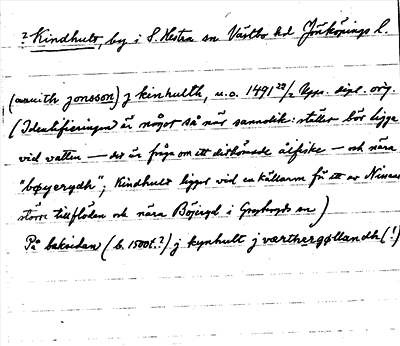 ? Kindhult, by i S. Hestra sn Västbo hd Jönköpings l.
(awith jonsson) j kinhulth, u.o. 1491 22/2 Upps. dipl. orig.
(Identifieringen är något så när sannolik: stället bör ligga
vid vatten — det är fråga om ett dithörande ålfiske — och nära
"bøyerydh"; Kindhult ligger vid en källarm få ett av Nissans
större tillflöden och nära Böjeryd i Gryteryds sn)
På baksidan (b. 1500t.?) j kynhult j værthergøllandh (!)